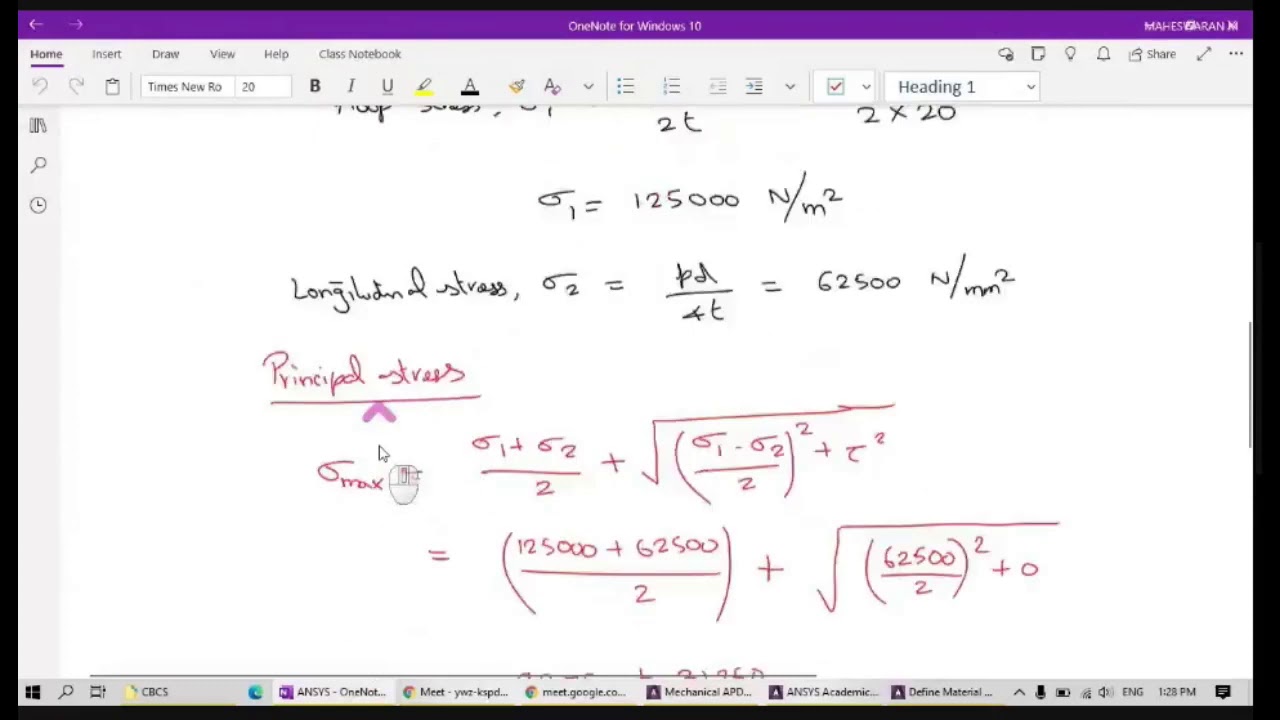 OneNote for Windows 10
MAHESWARAN M
Home Insert Draw View Help Class Notebook Share
Times New Ro 20 B I U A Heading 1
Hoop stress, σ1 2t 2 × 20
σ1 = 125000 N/m²
Longitudinal stress, σ2 = pd/4t = 62500 N/mm²
Principal stress
σmax = (σ1 + σ2)/2 + √(((σ1 - σ2)/2)² + τ²)
= ((125000 + 62500)/2) + √((62500/2)² + 0)
+ 31250
CBCS ANSYS - OneNot... Meet - ywz-kspd... meet.google.co... Mechanical APD... ANSYS Academic... Define Material ... ENG 1:28 PM